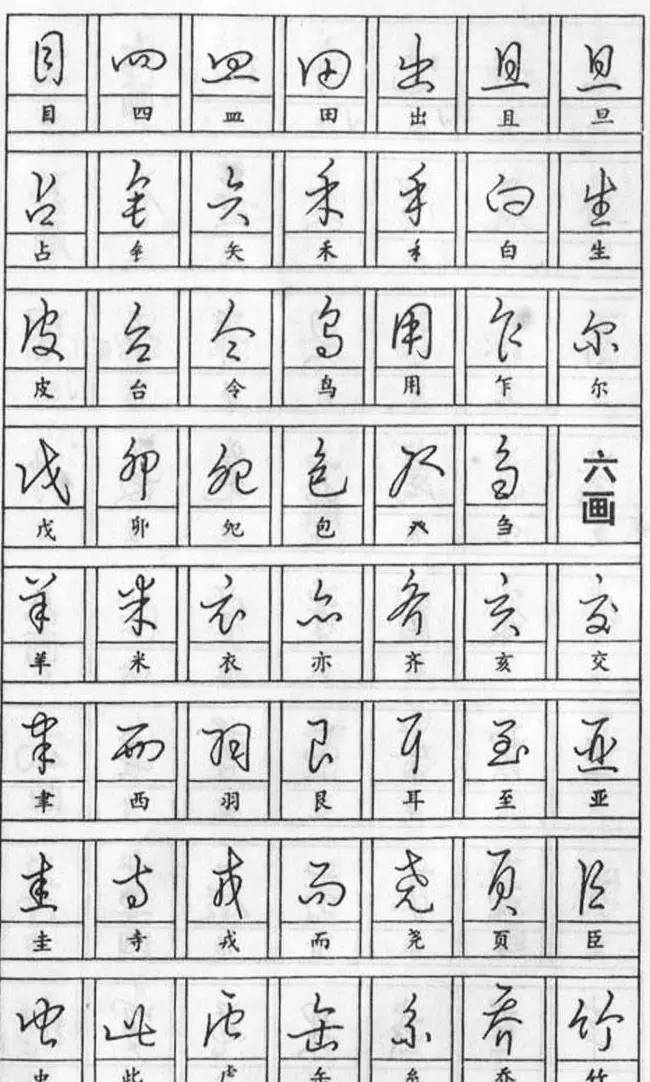 目 四 皿 田 出 且 旦
目 四 皿 田 出 且 旦
占 矢 禾 白 生
占 矢 禾 白 生
皮 台 令 鸟 用 乍 尔
皮 台 令 鸟 用 乍 尔
戊 卯 夗 包 癶 刍 六画
戊 卯 夗 包 癶 刍
羊 米 衣 亦 齐 亥 交
羊 米 衣 亦 齐 亥 交
聿 西 羽 艮 耳 至 亚
聿 西 羽 艮 耳 至 亚
圭 寺 戎 而 尧 页 臣
圭 寺 戎 而 尧 页 臣
虫 此 虍 缶 糸 乔 竹